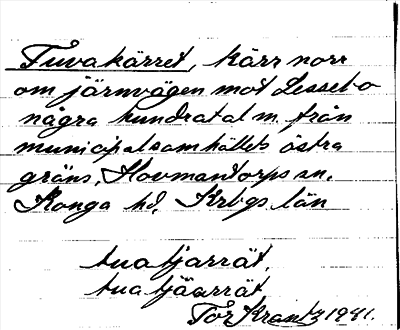 Tuvakärret, kärr norr
om järnvägen mot Lessebo
några hundratal m. från
municipalsamhällets östra
gräns, Hovmantorps sn.
Konga hd, Krbgs län
tua tjarrät,
tua tjäarrät
Tor Krantz 1941.